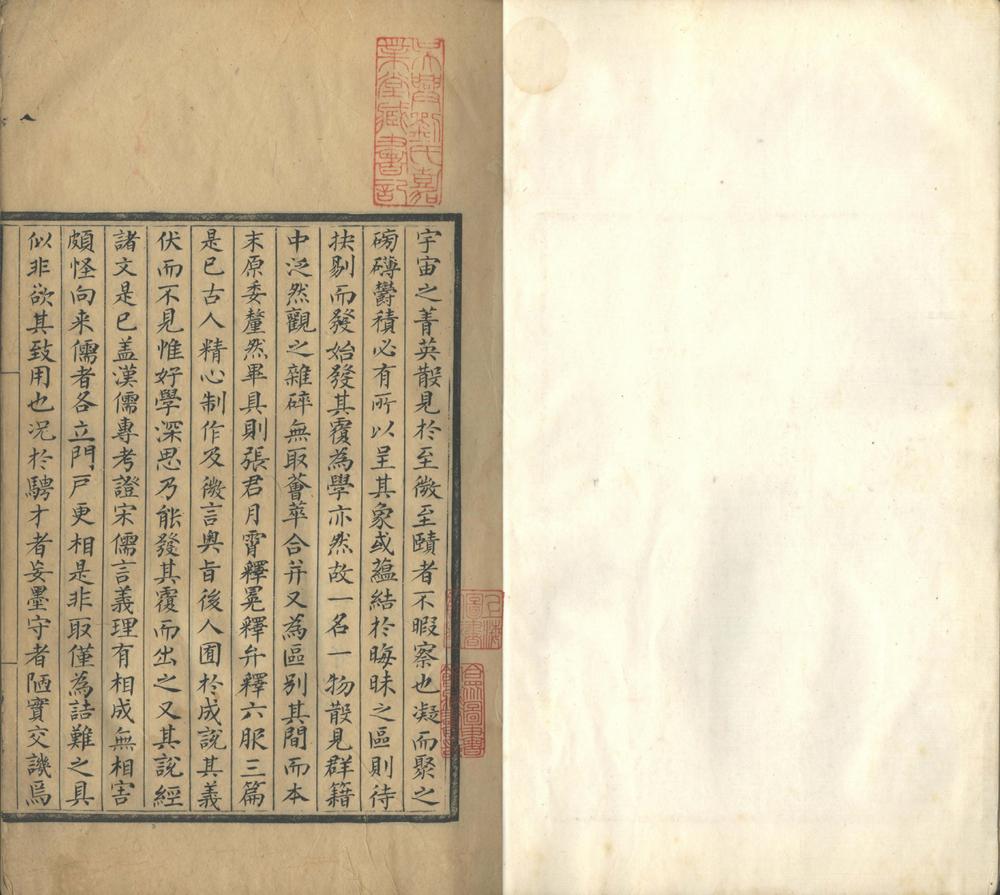 宇宙之菁英散見於至微至賾者不暇察也凝而聚之
磅礴鬱積必有所以呈其象或蘊結於晦昧之區則待
抉剔而發始發其覆為學亦然故一名一物散見群籍
中泛然觀之雜碎無取薈萃合并又為區別其間而本
末原委釐然畢具則張君月霄釋冕釋弁釋六服三篇
是已古人精心制作及微言奧旨後人囿於成說其義
伏而不見惟好學深思乃能發其覆而出之又其說經
諸文是已盖漢儒專考證宋儒言義理有相成無相害
頗怪向来儒者各立門戶更相是非取僅為詰難之具
似非欲其致用也况於騁才者妄墨守者陋實交譏焉
吳興劉氏嘉
業堂藏書記